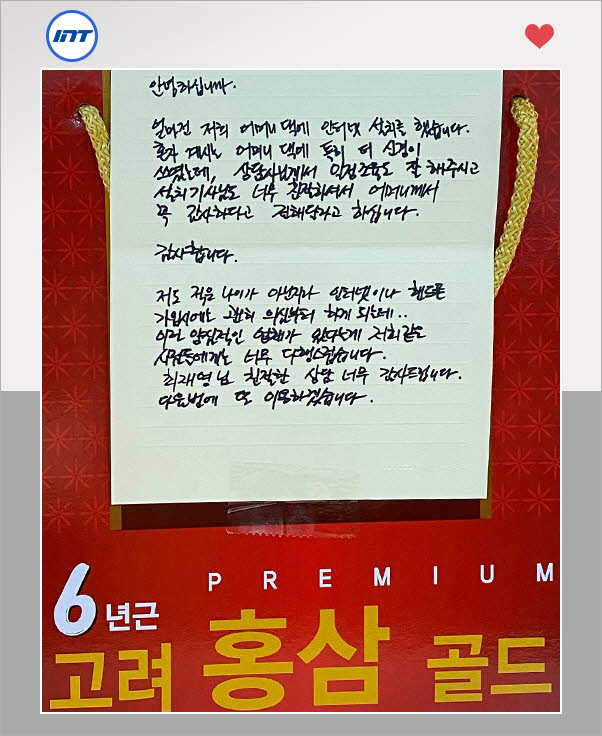 INT
안녕하십니까.
얼마전 저희 어머니 댁에 인터넷 설치를 했습니다.
혼자 계시는 어머니 댁에 특히 더 신경이
쓰였는데, 상담사님께서 인정도 잘 해주시고
설치기사님도 너무 친절하셔서 어머니께서
꼭 감사하다고 전해달라고 하십니다.
감사합니다.
저도 적은 나이가 아닌지라 인터넷이나 핸드폰
가입시에는 괜히 의심부터 하게 되는데..
이런 양심적인 업체가 있다는게 저희같은
사람들에게는 너무 다행스럽습니다.
최재영님 친절한 상담 너무 감사드립니다.
다음번에 또 이용하겠습니다.
PREMIUM
6년근
고려 홍삼 골드